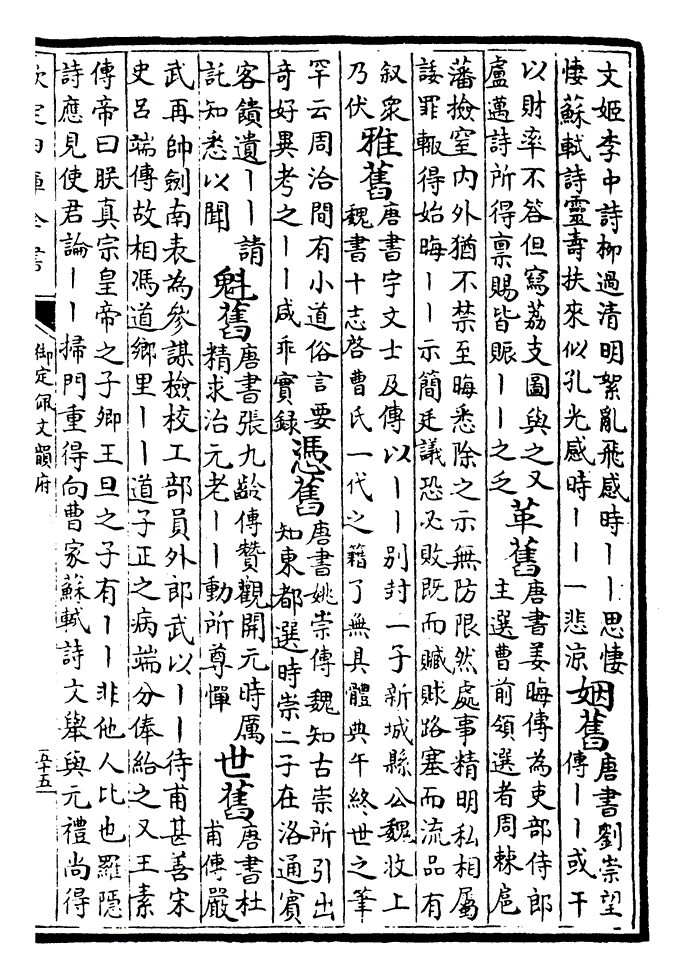 文姬李中詩柳過清明絮亂飛感時丨丨思悽
悽蘇軾詩靈壽扶來似孔光感時丨丨一悲涼
姻舊
唐書劉崇望
傳丨丨或干
以財率不答但寫荔支圖與之又
盧邁詩所得禀賜皆賑丨丨之乏
革舊
唐書姜晦傳為吏部侍郎
主選曹前領選者周棘扈
藩檢窒內外猶不禁至晦悉除之示無防限然處事精明私相屬
諉罪輙得始晦丨丨示簡廷議恐必敗既而贓賕路塞而流品有
叙衆
乃伏
雅舊
唐書宇文士及傳以丨丨别封一子新城縣公魏收上
魏書十志啓曹氏一代之籍了無具體典午終世之筆
罕云周洽間有小道俗言要
奇好異考之丨丨咸乖實録
憑舊
唐書姚崇傳魏知古崇所引出
知東都選時崇二子在洛通賓
客饋遺丨丨請
託知悉以聞
魁舊
唐書張九齡傳贊觀開元時厲
精求治元老丨丨動所尊憚
世舊
唐書杜
甫傳嚴
武再帥劍南表為參謀檢校工部員外郎武以丨丨待甫甚善宋
史呂端傳故相馮道鄉里丨丨道子正之病端分俸給之又王素
傳帝曰朕真宗皇帝之子卿王旦之子有丨丨非他人比也羅隱
詩應見使君論丨丨掃門重得向曹家蘇軾詩文舉與元禮尚得
欽定四庫全書
御定佩文韻府
五十五